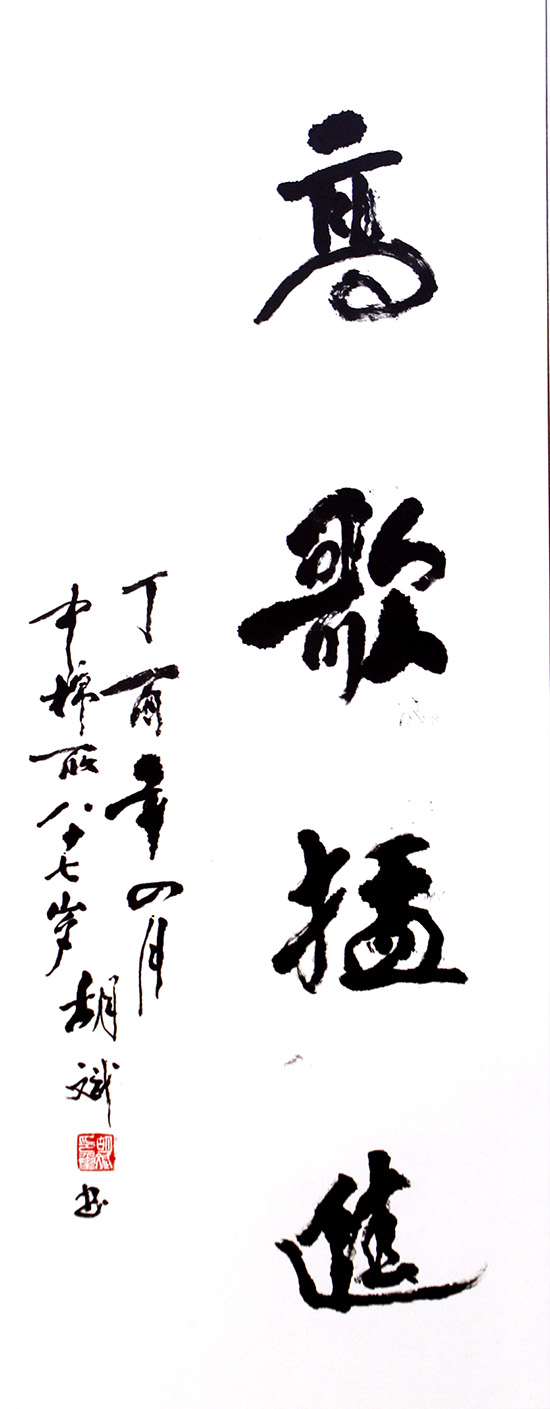 高歌猛進
丁酉年四月
中棉所八十七岁
胡斌
书